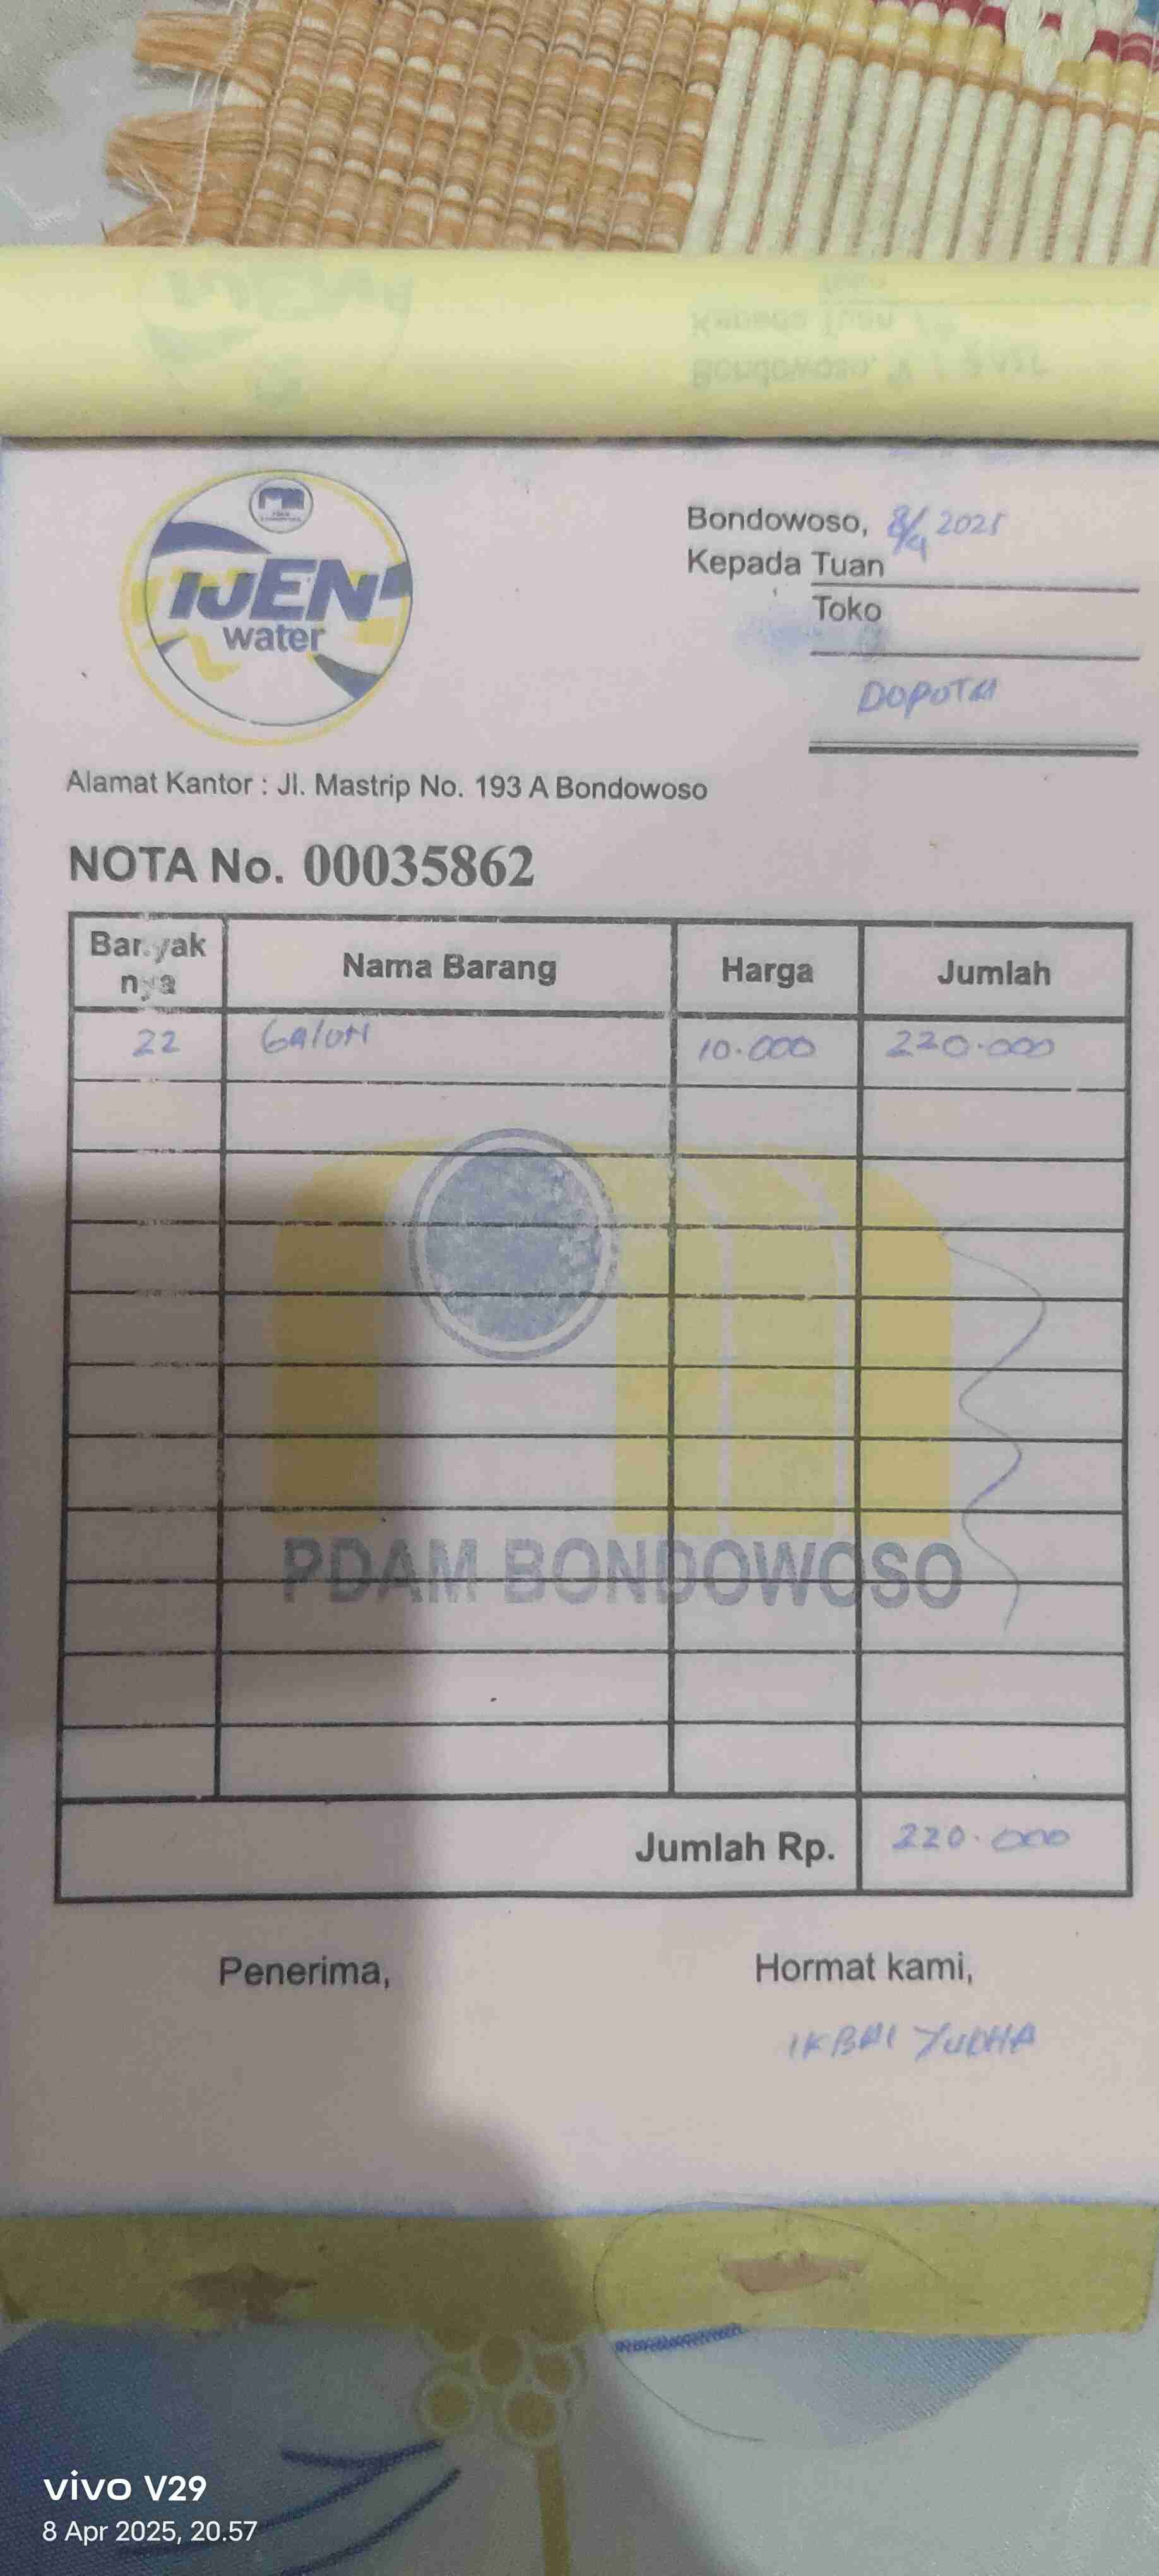 IJEN
water
Bondowoso, 8/4 2025
Kepada Tuan
Toko
DOPOTM
Alamat Kantor : Jl. Mastrip No. 193 A Bondowoso
NOTA No. 00035862
Banyak nya Nama Barang Harga Jumlah
22 Galon 10.000 220.000
PDAM BONDOWOSO
Jumlah Rp. 220.000
Penerima, Hormat kami,
IKBAl YUDHA
vivo V29
8 Apr 2025, 20.57